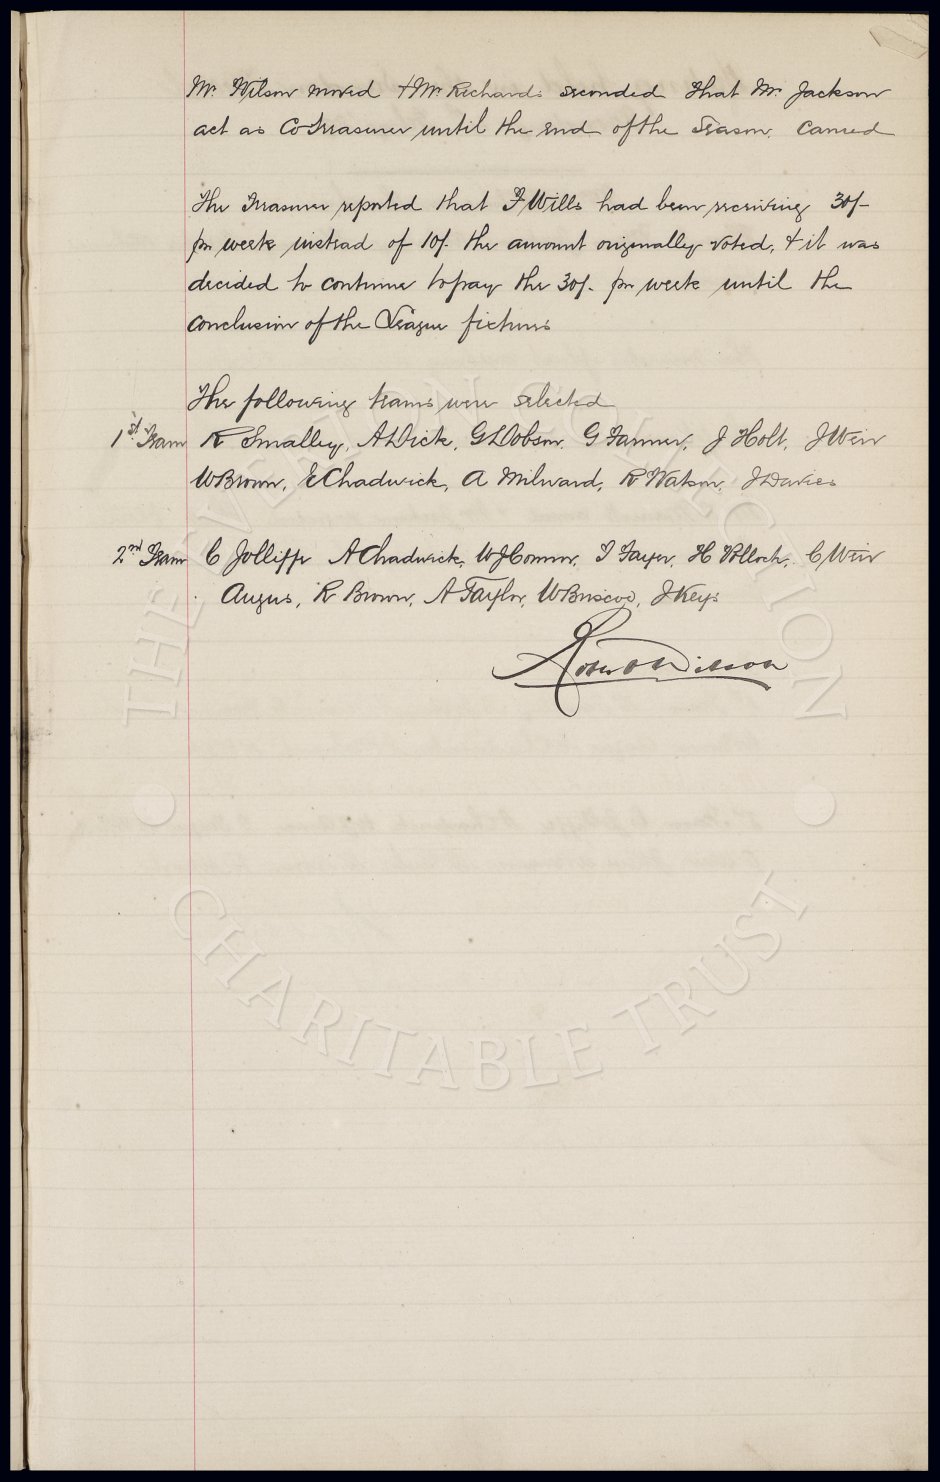 Mr. Wilson moved & Mr. Richards seconded that Mr. Jackson
act as CoTreasurer until the end of the season. Carried
The Treasurer reported that F Wills had been receiving 30/-
per week instead of 10/- the amount originally voted, & it was
decided to continue to pay the 30/- per week until the
conclusion of the League fixtures
The following teams were selected
1st Team R Smalley, A Dick, G Dobson, G Farmer, J Holt, J Weir
W Brown, E Chadwick, A Milward, R Watson, J Davies
2nd Team C Jolliffe A Chadwick, W J Connor, T Fayer, H Pollock, C Weir
Angus, R Brown, A Taylor, W Briscoe, J Keys
Wilson
THE EVERTON COLLECTION
CHARITABLE TRUST